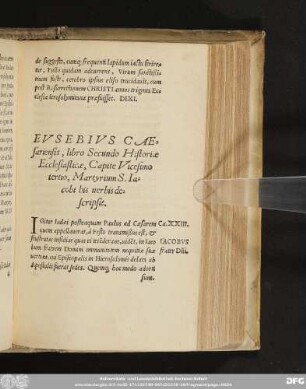 de suggesto, eumq; frequenti lapidum iactu ferirent
ter, Fullo quidam adcurrens, Virum sanctissi-
mum fuste, cerebro ipsius eliso trucidauit, cum
post Resurrectionem CHRISTI annos triginta Ec-
clesiæ Ierosolymitanæ præfuisset. DIXI.
EVSEBIVS CAE-
sariensis, libro Secundo Historiæ
Ecclesiasticæ, Capite Vicesimo
tertio, Martyrium S. Ia-
cobi his uerbis de-
scripsit.
Igitur Iudæi posteaquam Paulus ad Cæsarem Ca. XXIII.
quem appellauerat, à Festo transmissus est, &
frustratas insidias quas ei tetiderant, uidēt, in Iaco
bum fratrem Domini immanitatem nequitiæ suæ
uertunt, cui Episcopalis in Hierosolymis sedes ab
Apostolis fuerat
IACOBVS
frater Dñi.
Quem hoc modo adorti
sunt.